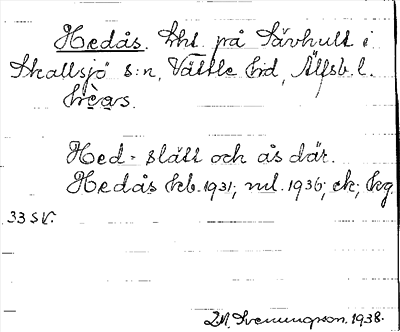 Hedås. Lht. på Sävhult i
Skallsjö s:n, Vättle hd, Älfsb. l.
hèas.
Hed = slätt och ås där.
Hedås kb. 1931; ml. 1936; ek; hg
33 SV.
Svenungsson. 1938.